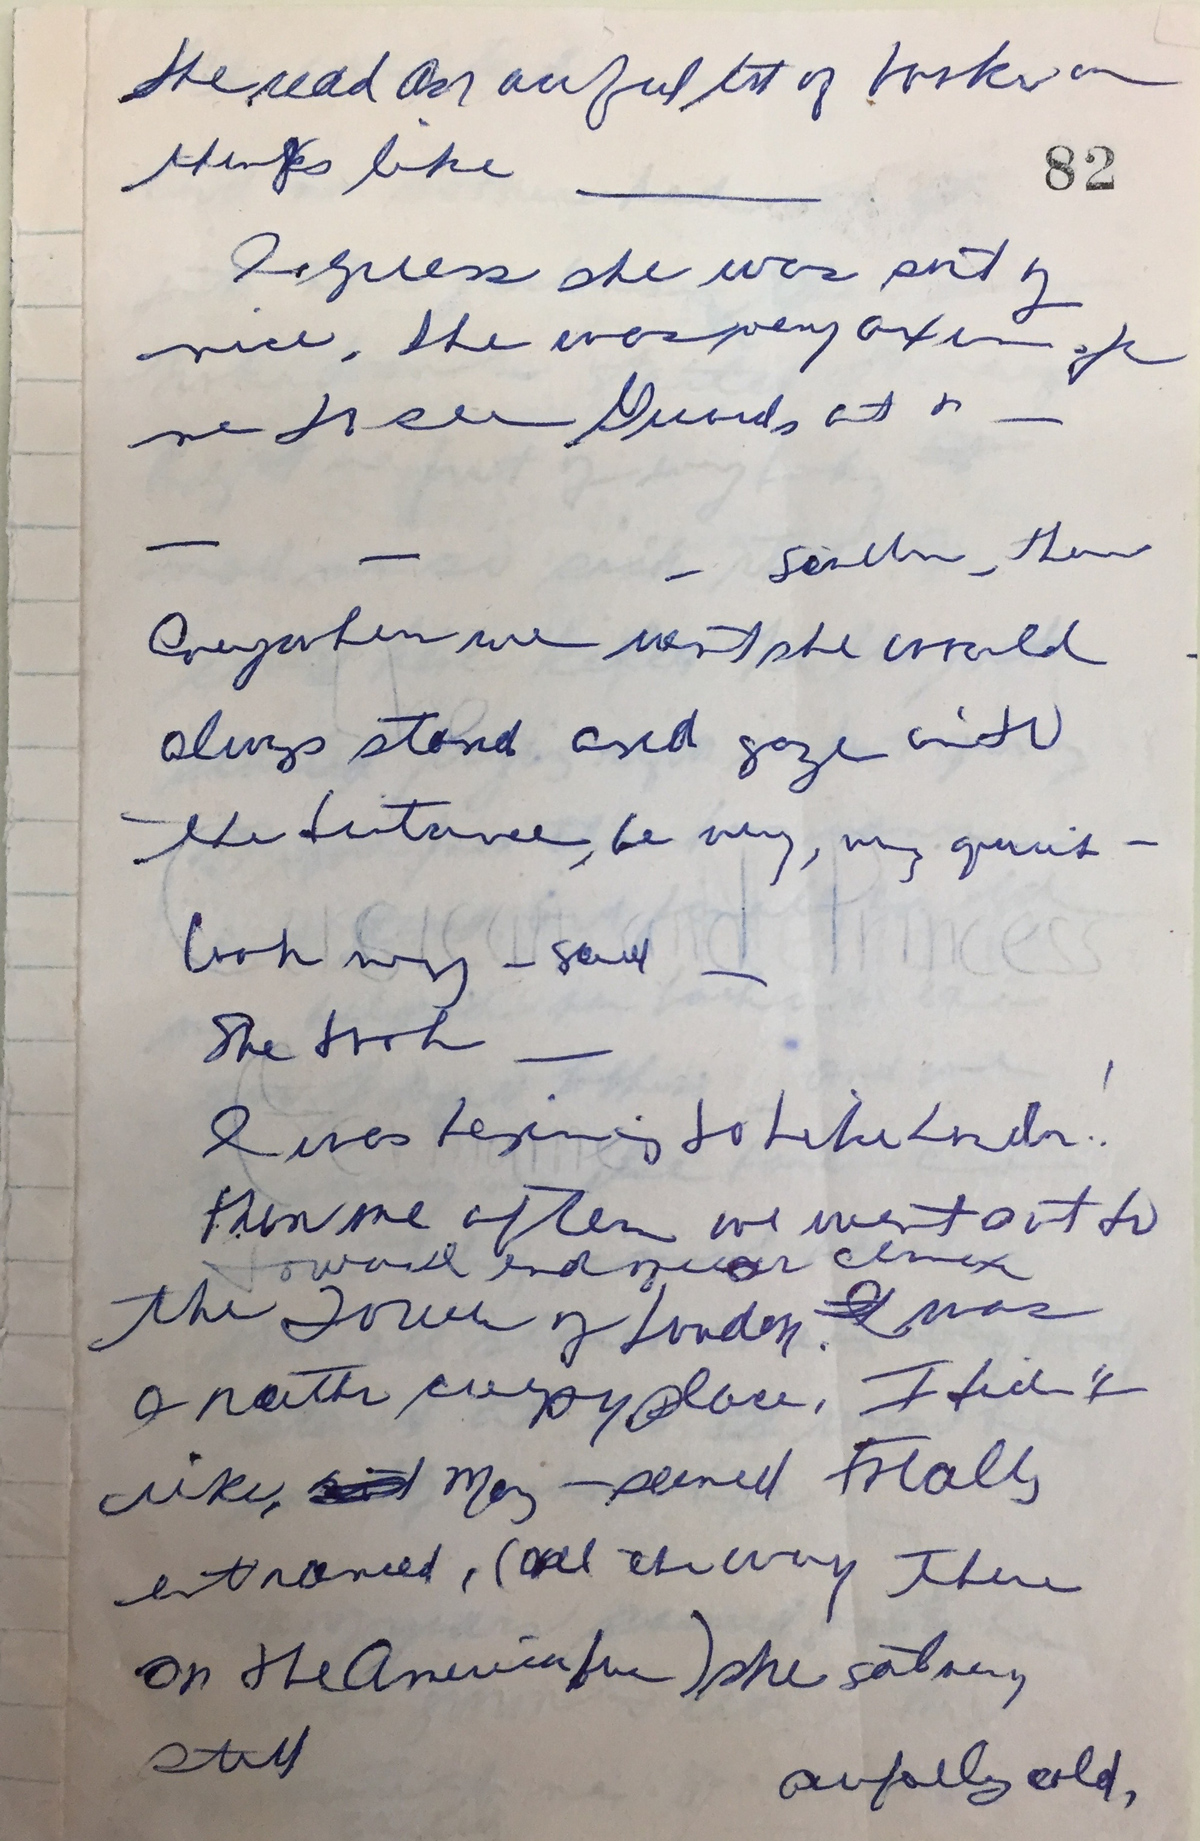 She read an awful lot of books on
things like ______
82
I guess she was sort of
nice. She was very
me to see Guards at —
— — — then
Everywhere we went she would
always stand and gaze into
the distance, be very, very quiet —
Look very — said —
She took —
I was begining to like London!
Then one afternoon we went out to
toward end or near climax
the Tower of London. It was
a rather creepy place. I didn't
like, May — seemed totally
entranced, (all the way there
on the ) she sat very
still
awfully cold,